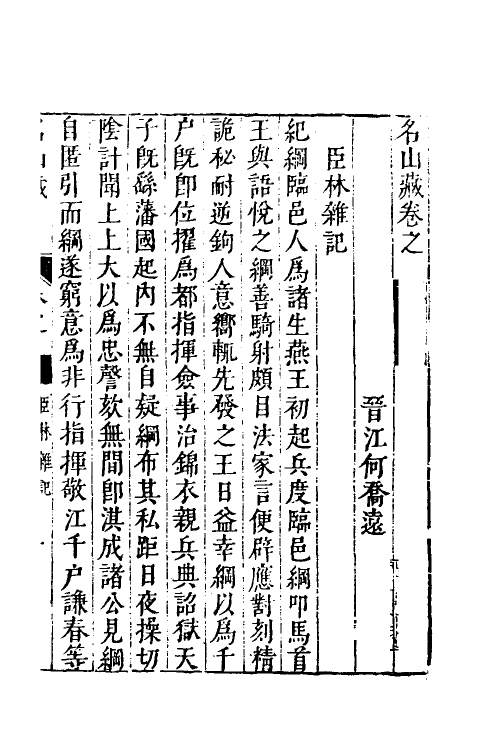 名山藏卷之
晉江何喬遠
臣林雜記
紀綱臨邑人爲諸生燕王初起兵度臨邑綱叩馬首
王與語悅之綱善騎射頗目法家言便辟應對刻精
詭秘耐逆鉤人意嚮輒先發之王日益幸綱以爲千
户旣即位擢爲都指揮僉事治錦衣親兵典詔獄天
子旣繇藩國起内不無自疑綱布其私距日夜操切
陰計聞上上大以爲忠謦欬無間卽淇成諸公見綱
自匿引而綱遂窮意爲非行指揮敬江千户謙春等
名山藏
卷之
臣林雜記